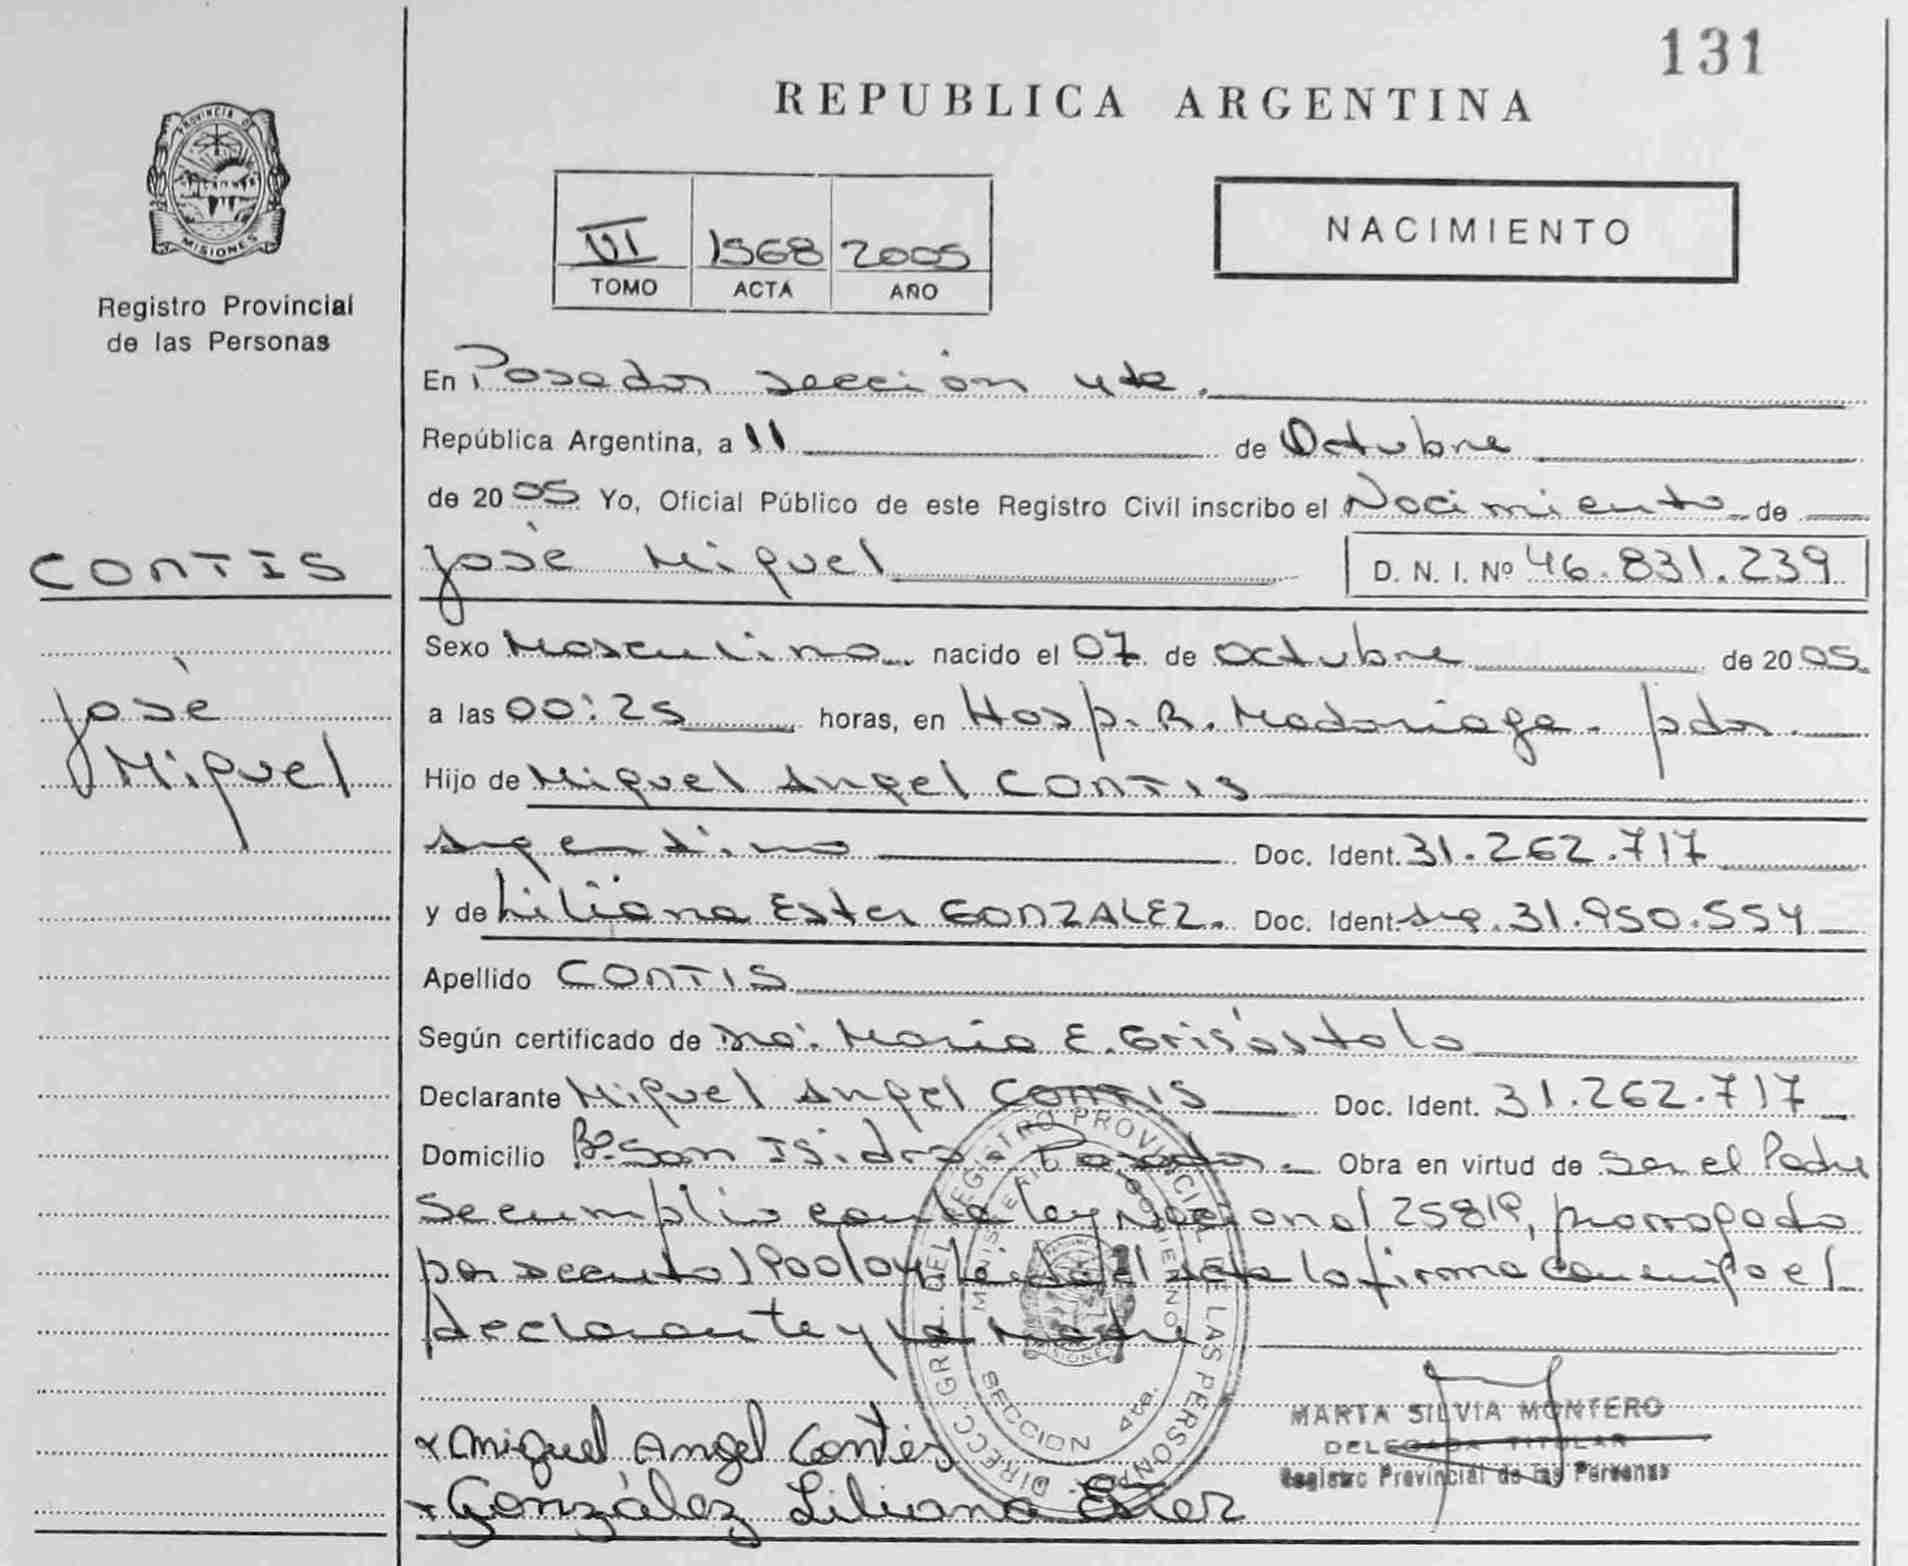 131
REPUBLICA ARGENTINA
PROVINCIA DE
MISIONES
Registro Provincial
de las Personas
VI 1568 2005
TOMO ACTA AÑO
NACIMIENTO
En Posadas sección 4ta.
República Argentina, a 11 de Octubre
de 2005 Yo, Oficial Público de este Registro Civil inscribo el Nacimiento de
CONTIS
José Miguel D. N. I. Nº 46.831.239
José
Miguel
Sexo Masculino nacido el 07 de Octubre de 2005
a las 00:25 horas, en Hosp. R. Madariaga - pdas.
Hijo de Miguel Angel CONTIS
argentino Doc. Ident. 31.262.717
y de Liliana Ester GONZALEZ. Doc. Ident. arg. 31.950.554
Apellido CONTIS
Según certificado de María E. Grisóstolo
Declarante Miguel Angel CONTIS Doc. Ident. 31.262.717
Domicilio Bº San Isidro - Posadas - Obra en virtud de ser el Padre
Se cumplio con la ley Nacional 25819, prorrogado
por decreto 1900/04. Leída el acta la firma conmigo el
declarante y la madre
DIRECC. GRAL. DEL REGISTRO PROVINCIAL DE LAS PERSONAS
MINISTERIO GOBIERNO
SECCION 4ta.
MISIONES
x Miguel Angel Contis
x González Liliana Ester
MARTA SILVIA MONTERO
DELEGADA TITULAR
Registro Provincial de las Personas